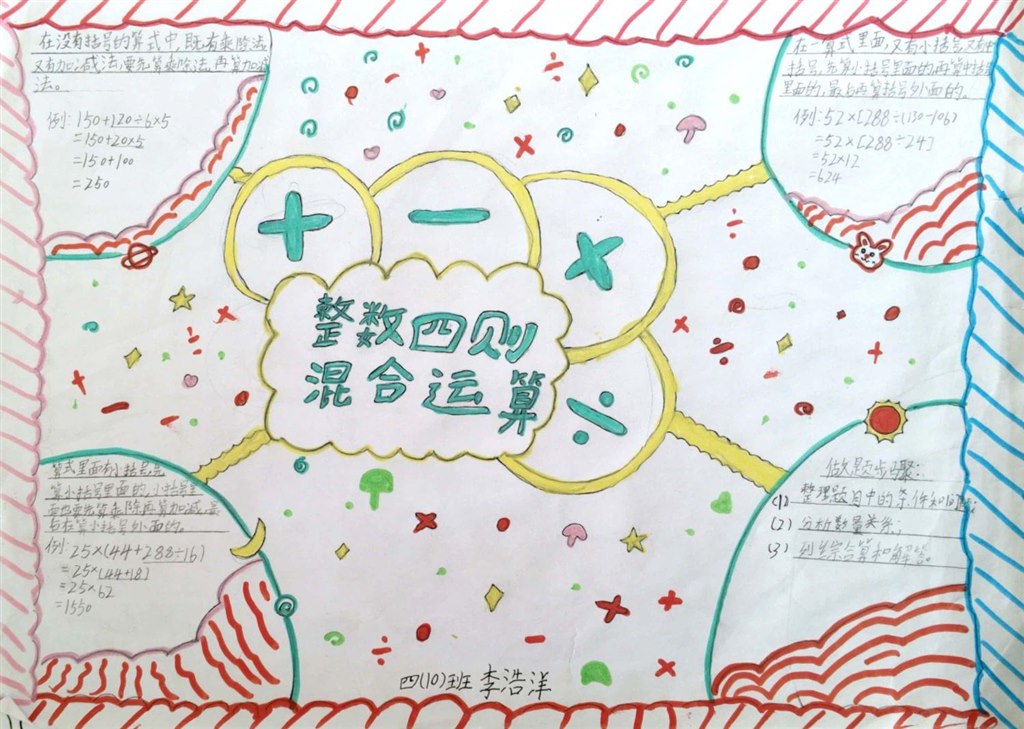 在没有括号的算式中,既有乘除法
又有加、减法,要先算乘除法,再算加减
法。
例: 150+120÷6×5
=150+20×5
=150+100
=250
在一算式里面,又有小括号,又有中
括号,先算小括号里面的,再算中括号
里面的,最后再算括号外面的。
例: 52×[288÷(130-106)
=52×[288÷24]
=52×12
=624
+
−
×
÷
整数四则
混合运算
算式里面有小括号,先
算小括号里面的,小括号里
面也要先算乘除,再算加减,最
后在算小括号外面的。
例: 25×(44+288÷16)
=25×(44+18)
=25×62
=1550
做题步骤:
(1) 整理题目中的条件和问题;
(2) 分析数量关系;
(3) 列综合算和解答。
四(10)班 李浩洋